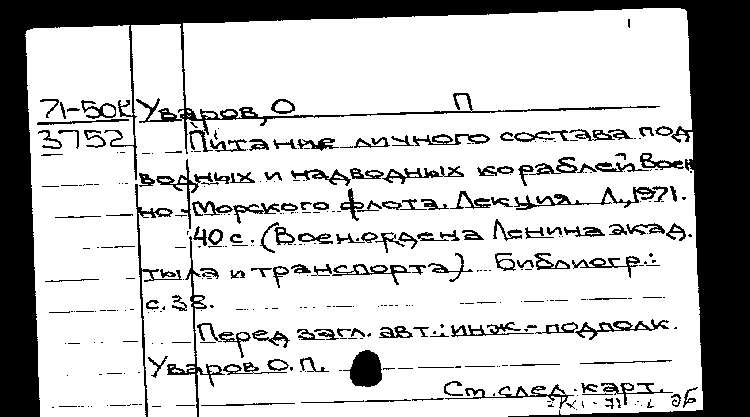 71-50к Уваров, О П
3752 Питание личного состава под
водных и надводных кораблей Воен
но-Морского флота. Лекция. Л., 1971.
40 с. (Воен. ордена Ленина акад.
тыла и транспорта). Библиогр.:
с. 38.
Перед загл. авт.: инж.-подполк.
Уваров О.П.
См. след. карт.